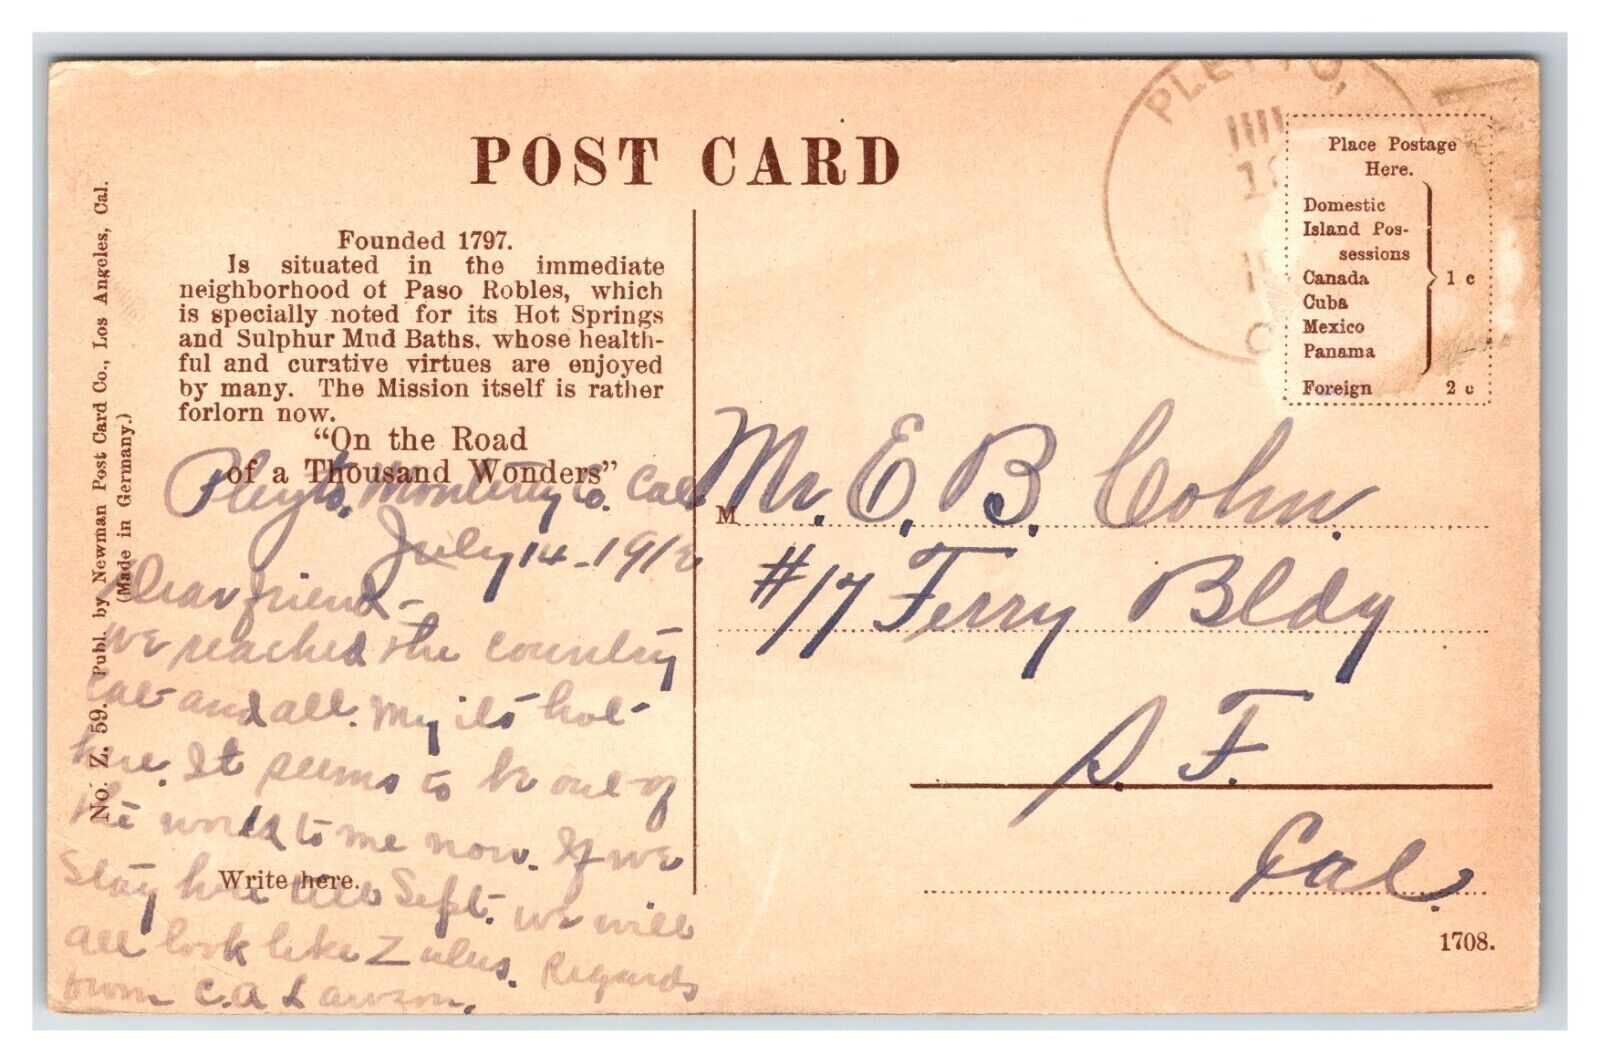 POST CARD
PLEYTO,
Place Postage
Here.
Domestic
Island Pos-
sessions
Canada
Cuba
Mexico
Panama
1 c
Foreign 2 c
Founded 1797.
Is situated in the immediate
neighborhood of Paso Robles, which
is specially noted for its Hot Springs
and Sulphur Mud Baths, whose health-
ful and curative virtues are enjoyed
by many. The Mission itself is rather
forlorn now.
"On the Road
of a Thousand Wonders"
Pleyto, Monterey Co. Cal
July 14 - 1912
Dear friend -
We reached the country
Cat and all. My its hot
here. It seems to be out of
the world to me now. If we
Stay here till Sept. we will
all look like Zulus. Regards
from C. A Lawson.
Write here.
No. Z. 59. Publ. by Newman Post Card Co., Los Angeles, Cal.
(Made in Germany.)
M
Mr. E. B. Cohn.
#17 Ferry Bldg
S. F.
Cal.
1708.